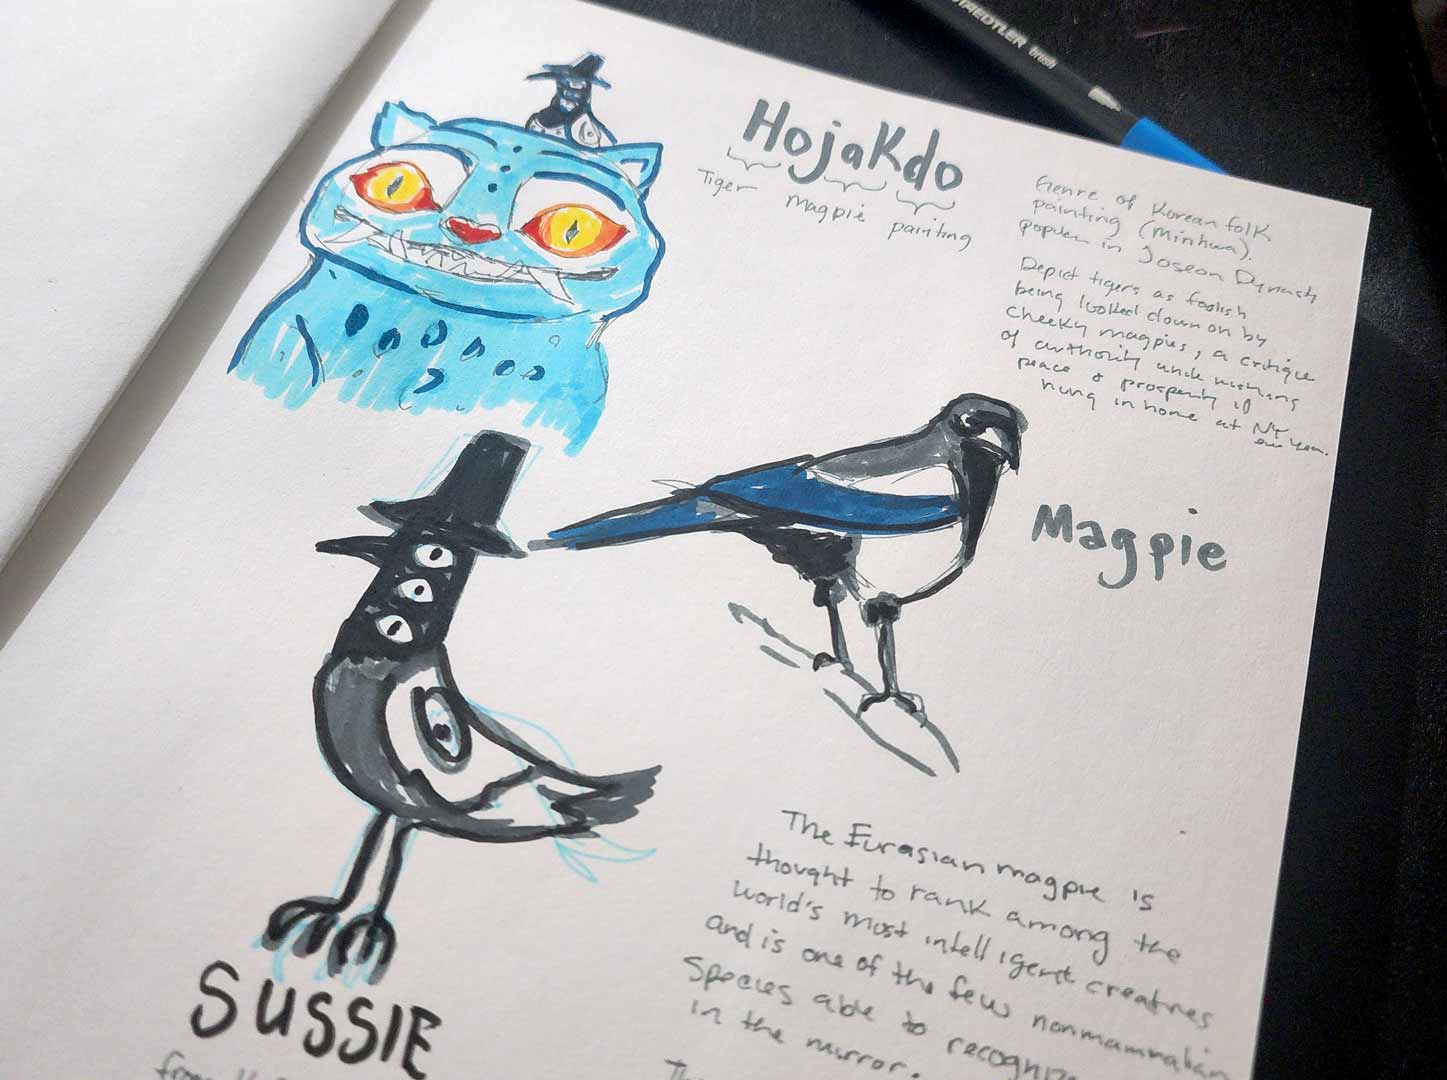 STAEDTLER brush
HojaKdo
Tiger magpie painting
Genre of Korean folk
painting (Minhwa).
popular in Joseon Dynasty
Depict tigers as foolish
being looked down on by
cheeky magpies, a critique
of authority and wishing
peace & prosperity if
hung in home at
Magpie
The Eurasian magpie is
thought to rank among the
world's most intelligent creatures
and is one of the few nonmammalian
species able to recognize
in the mirror.
SUSSIE
from